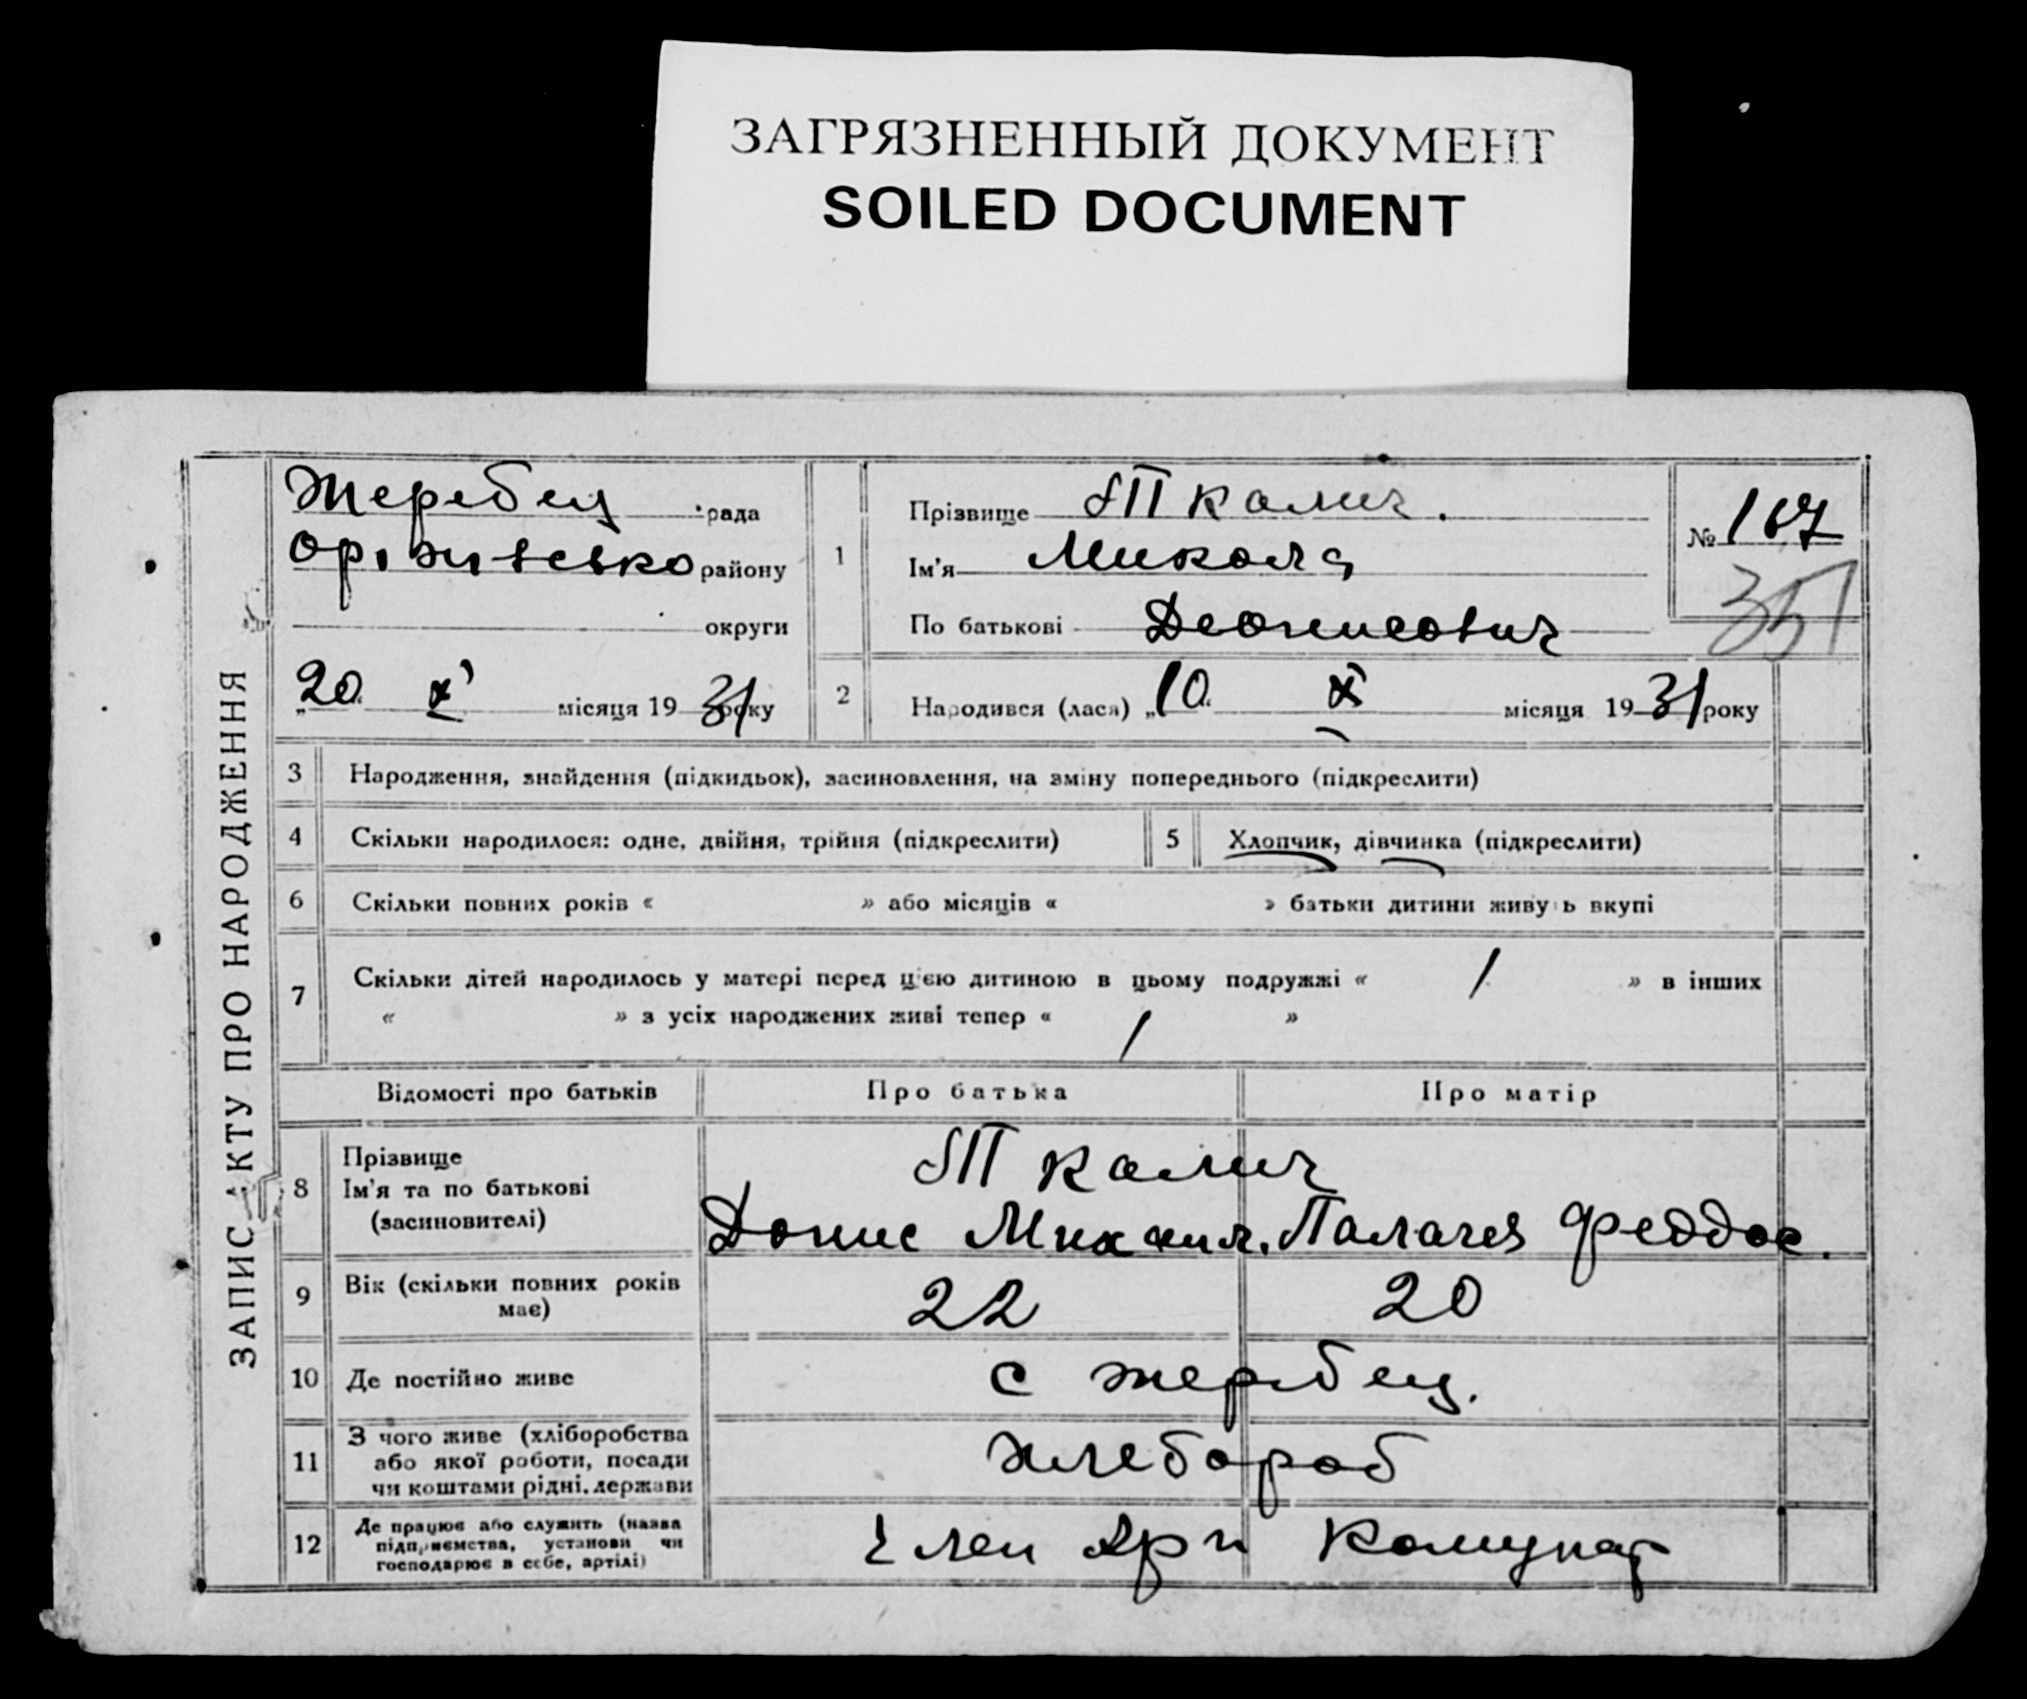 ЗАГРЯЗНЕННЫЙ ДОКУМЕНТ
SOILED DOCUMENT
ЗАПИС АКТУ ПРО НАРОДЖЕННЯ
Жеребец рада
району
округи
20 X місяця 1931 року
1
Прізвище Ткалич.
Ім'я Микола
По батькові Деонисович
№ 167
351
2 Народився (лася) „10" X місяця 1931 року
3 Народження, знайдення (підкидьок), засиновлення, на зміну попереднього (підкреслити)
4 Скільки народилося: одне, двійня, трійня (підкреслити)
5 Хлопчик, дівчинка (підкреслити)
6 Скільки повних років « » або місяців « » батьки дитини живуть вкупі
7 Скільки дітей народилось у матері перед цією дитиною в цьому подружжі « 1 » в інших
« » з усіх народжених живі тепер « 1 »
Відомості про батьків Про батька Про матір
8 Прізвище
Ім'я та по батькові
(засиновителі)
Ткалич
Донис Михаил. Палагея Феддос.
9 Вік (скільки повних років
має)
22 20
10 Де постійно живе с жеребец.
11 З чого живе (хліборобства
або якої роботи, посади
чи коштами рідні, держави
хлебороб
12 Де працює або служить (назва
підприємства, установи чи
господарює в себе, артілі)
Член Арт